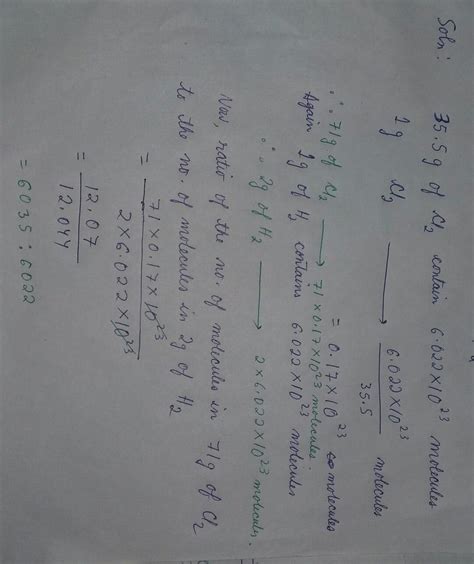 Soln: 35.5g of Cl₂ contain 6.022×10²³ molecules
1g Cl₂ ⟶ 6.022×10²³ / 35.5 molecules
= 0.17×10²³ molecules
∴ 71g of Cl₂ ⟶ 71×0.17×10²³ molecules.
Again 1g of H₂ contains 6.022×10²³ molecules
∴ 2g of H₂ ⟶ 2×6.022×10²³ molecules.
Now, ratio of the no. of molecules in 71g of Cl₂
to the no. of molecules in 2g of H₂
= 71×0.17×10²³ / 2×6.022×10²³
= 12.07 / 12.044
= 6035 : 6022